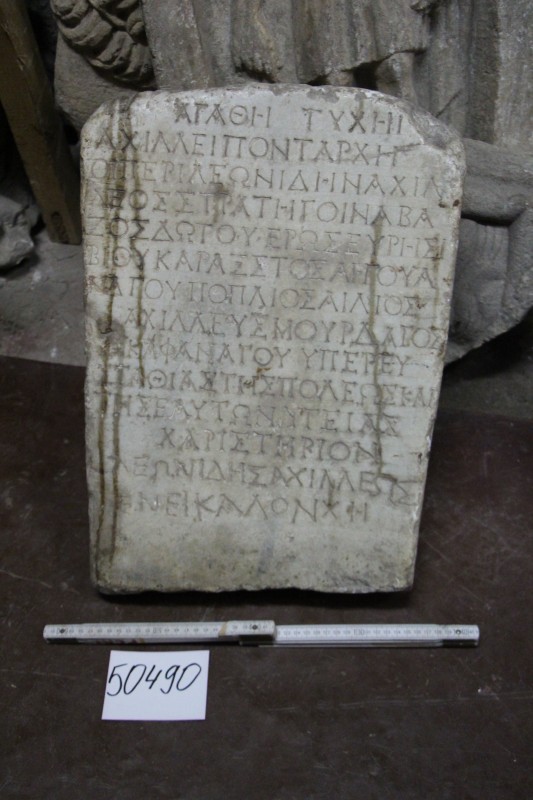 ΑΓΑΘΗΙ ΤΥΧΗΙ
ΑΧΙΛΛΕΙ ΠΟΝΤΑΡΧΗ
ΟΙ ΠΕΡΙ ΛΕΩΝΙΔΗΝ ΑΧΙΛ
ΛΕΟΣ ΣΤΡΑΤΗΓΟΙ ΝΑΒΑ
ΖΟΣ ΔΩΤΟΥ ΕΡΩΣ ΕΥΡΗΣΙ
ΒΙΟΥ ΚΑΡΑΣΣΤΟΣ ΑΓΟΥΑ
ΝΑΓΟΥ ΠΟΠΛΙΟΣ ΑΙΛΙΟΣ
ΑΧΙΛΛΕΥΣ ΜΟΥΡΔΑΓΟΣ
ΥΠΕΡ ΕΥ
ΣΤΑΘΙΑΣ ΤΗΣ ΠΟΛΕΩΣ ΚΑΙ
ΤΗΣ ΕΑΥΤΩΝ ΥΓΕΙΑΣ
ΧΑΡΙΣΤΗΡΙΟΝ
ΛΕΩΝΙΔΗΣ ΑΧΙΛΛΕΟΣ
ΕΝΕΙΚΑ ΛΟΝΧΗ
50490